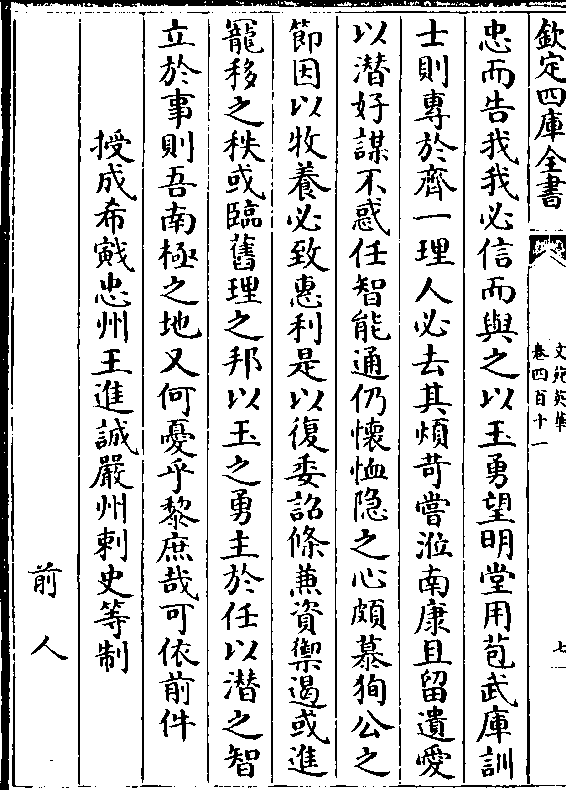 欽定四庫全書
文苑英華
卷四百十一
七
忠而告我我必信而與之以玉勇望明堂用苞武庫訓
士則專於齊一理人必去其煩苛嘗涖南康且留遺愛
以潜好謀不惑任智能通仍懷恤隐之心頗慕狥公之
節因以牧養必致惠利是以復委詔條兼資禦遏或進
寵移之秩或臨舊理之邦以玉之勇主於任以潜之智
立於事則吾南極之地又何憂乎黎庶哉可依前件
授成希戭忠州王進誠嚴州刺史等制
前人